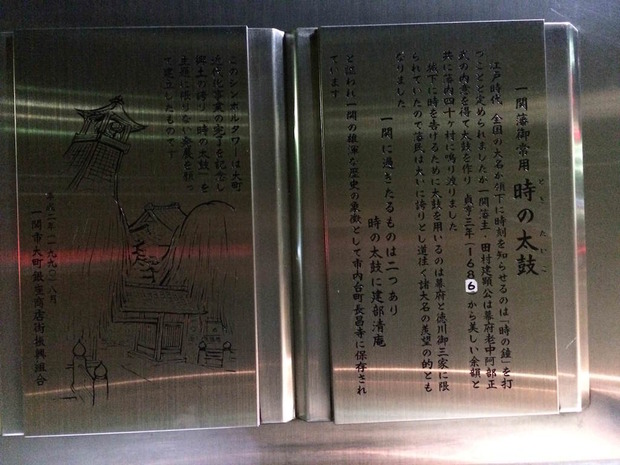 一関藩御常用 時の太鼓
ときたいこ
江戸時代、全国の大名が領下に時刻を知らせるのは「時の鐘」を打
つことと定められましたが一関藩主・田村建顕公は幕府老中阿部正
武の内意を得て太鼓を作り 貞享三年(1686)から美しい余韻と
共に藩内四十ヶ村に鳴り渡りました
城下に時を告げるために太鼓を用いるのは幕府と徳川御三家に限
られていたので藩民は大いに誇りとし道往く諸大名の羨望の的とも
なりました
一関に過ぎたるものは二つあり
時の太鼓に建部清庵
と謳われ一関の雄軍な歴史の象徴として市内台町長昌寺に保存され
ています
このシンボルタワーは大町
近代化事業の完了を記念し
郷土の誇り「時の太鼓」を
主題に限りない発展を願っ
て建立したものです
平成二年(一九九〇)八月
一関市大町銀座商店街振興組合